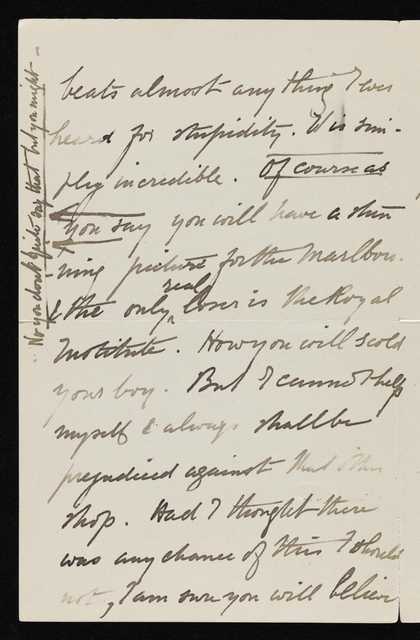 beats almost any thing I ever
heard for stupidity. It is sim-
ply incredible. Of course as
you say you will have a stun
ning picture for the Marlbou.
& the only really loser is the Royal
Institute. How you will scold
your boy. But I cannot help
myself & always shall be
prejudiced against that other
shop. Had I thought there
was any chance of this I should
not, I am sure you will believe
No you don't quite say that but you might -